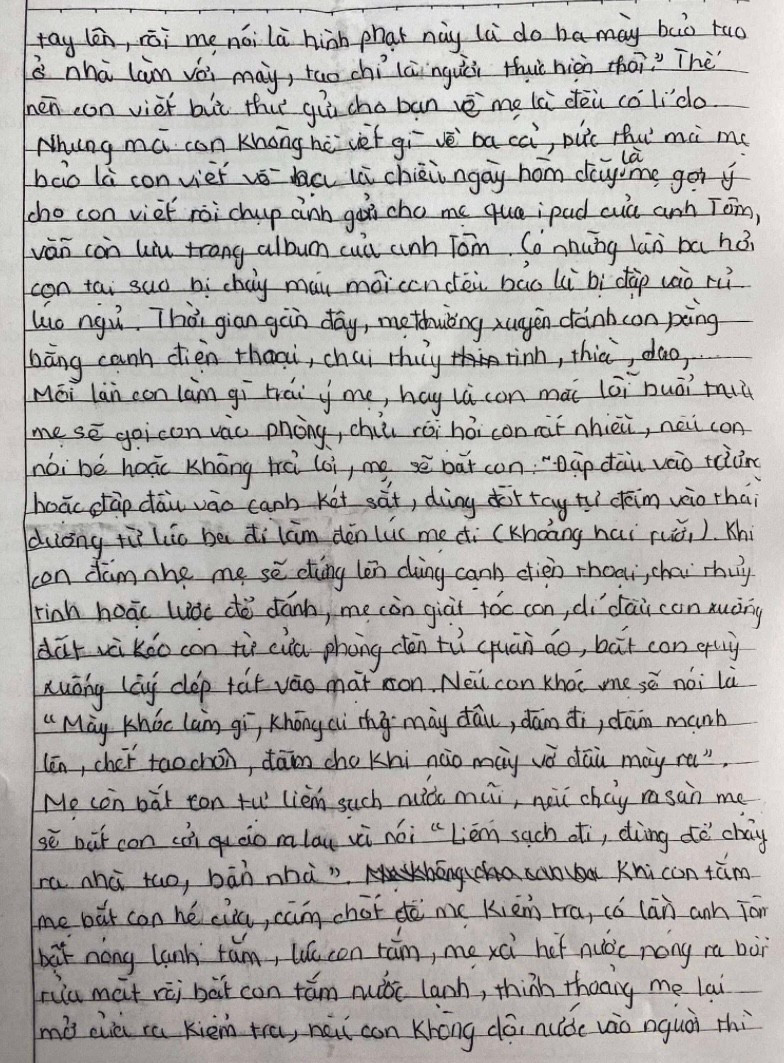 tay lên, rồi mẹ nói là hình phạt này là do ba mày bảo tao
ở nhà làm với mày, tao chỉ là người thực hiện thôi". Thế
nên con viết bức thư gửi cho bạn về mẹ là đều có lí do.
Nhưng mà con không hề viết gì về ba cả, bức thư mà mẹ
bảo là con viết về là chiều ngày hôm đấy là mẹ gợi ý
cho con viết rồi chụp ảnh gửi cho mẹ qua ipad của anh Tôm,
vẫn còn lưu trong album của anh Tôm. Có những lần ba hỏi
con tại sao bị chảy máu môi con đều bảo là bị đập vào tủ
lúc ngủ. Thời gian gần đây, mẹ thường xuyên đánh con bằng
bằng cạnh điện thoại, chai thủy tinh, thìa, dao,...
Mỗi lần con làm gì trái ý mẹ, hay là con mắc lỗi buổi trưa
mẹ sẽ gọi con vào phòng, chửi rồi hỏi con rất nhiều, nếu con
nói bé hoặc không trả lời, mẹ sẽ bắt con: "Đập đầu vào tường
hoặc đập đầu vào cạnh két sắt, dùng đốt tay tự đấm vào thái
dương từ lúc ba đi làm đến lúc mẹ đi (khoảng hai rưỡi). Khi
con đấm nhẹ mẹ sẽ đứng lên dùng cạnh điện thoại, chai thủy
tinh hoặc lược để đánh, mẹ còn giật tóc con, dí đầu con xuống
đất và kéo con từ cửa phòng đến tủ quần áo, bắt con quỳ
xuống lấy dép tát vào mặt con. Nếu con khóc mẹ sẽ nói là
"Mày khóc làm gì, không ai thg mày đâu, đấm đi, đấm mạnh
lên, chết tao chôn, đấm cho khi nào mày vỡ đầu mày ra".
Mẹ còn bắt con tự liếm sạch nước mũi, nếu chảy ra sàn mẹ
sẽ bắt con cởi quần áo ra lau và nói "Liếm sạch đi, đừng để chảy
ra nhà tao, bẩn nhà". Khi con tắm
mẹ bắt con hé cửa, cấm chốt để mẹ kiểm tra, có lần anh Tôm
bật nóng lạnh tắm, lúc con tắm, mẹ xả hết nước nóng ra bồn
rửa mặt rồi bắt con tắm nước lạnh, thỉnh thoảng mẹ lại
mở cửa ra kiểm tra, nếu con không dội nước vào người thì